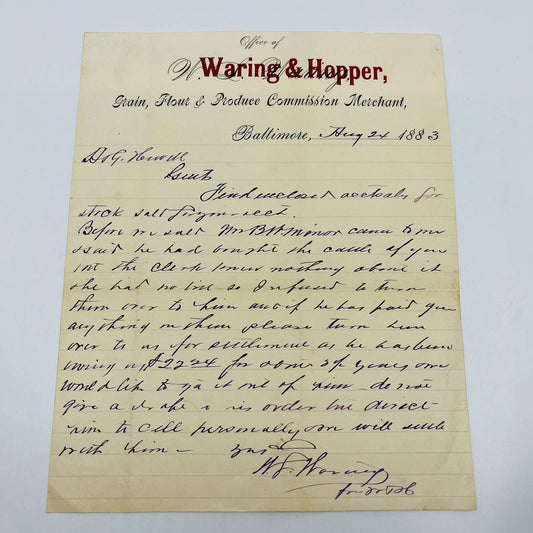 Office of
Waring & Hopper,
Grain, Flour & Produce Commission Merchant,
Baltimore, Aug 24 1883
Gents
Find inclosed for
stock sold
Before we sold Mr B W Minor came to me
& said he had bought the cattle of you
but the Clerk knew nothing about it
& he had no so I refused to turn
them over to him and if he has paid you
anything on them please turn him
over to us for settlement as he has been
owing us $2224 for some 2 years and
would like to get it out of him do not
give a or his order but direct
him to call personally and will settle
with him –
Waring